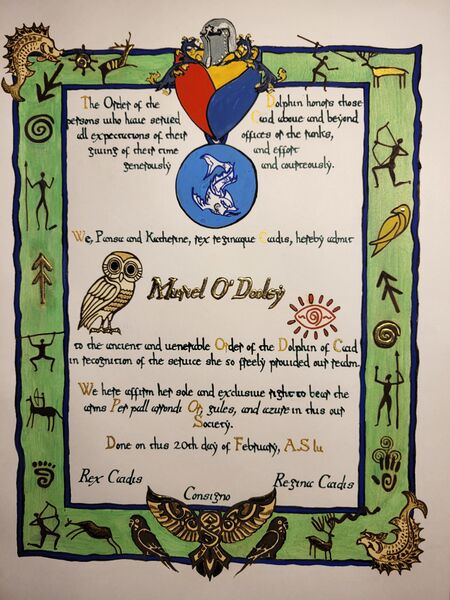 The Order of the Dolphin honors those
persons who have served Caid above and beyond
all expectations of their offices or the ranks,
giving of their time and effort
generously and courteously.
We, Pansa and Katherine, rex reginaque Caidis, hereby admit
O'Dooley
to the ancient and venerable Order of the Dolphin of Caid
in recognition of the service she so freely provided our realm.
We here affirm her sole and exclusive right to bear the
arms Per pall arrondi Or, gules, and azure in this our
Society.
Done on this 20th day of February, A.S. lv
Rex Caidis
Consigno
Regina Caidis